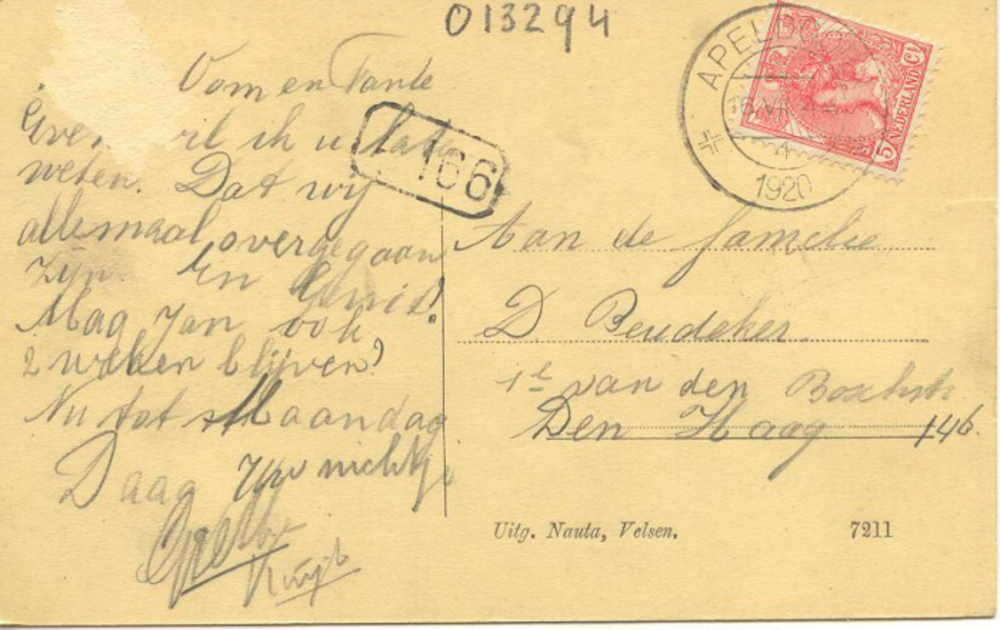 013294
Oom en Tante
Even wil ik u laten
weten. Dat wij
allemaal overgegaan
zijn. En Gerrie!
Mag Jan ook
2 weken blijven?
Nu tot Maandag
Daag Uw nichtje
166
APELDO
1920
5 NEDERLAND Ct
Aan de familie
D. Beudeker
1e van den Boschstr
Den Haag 146.
Uitg. Nauta, Velsen. 7211